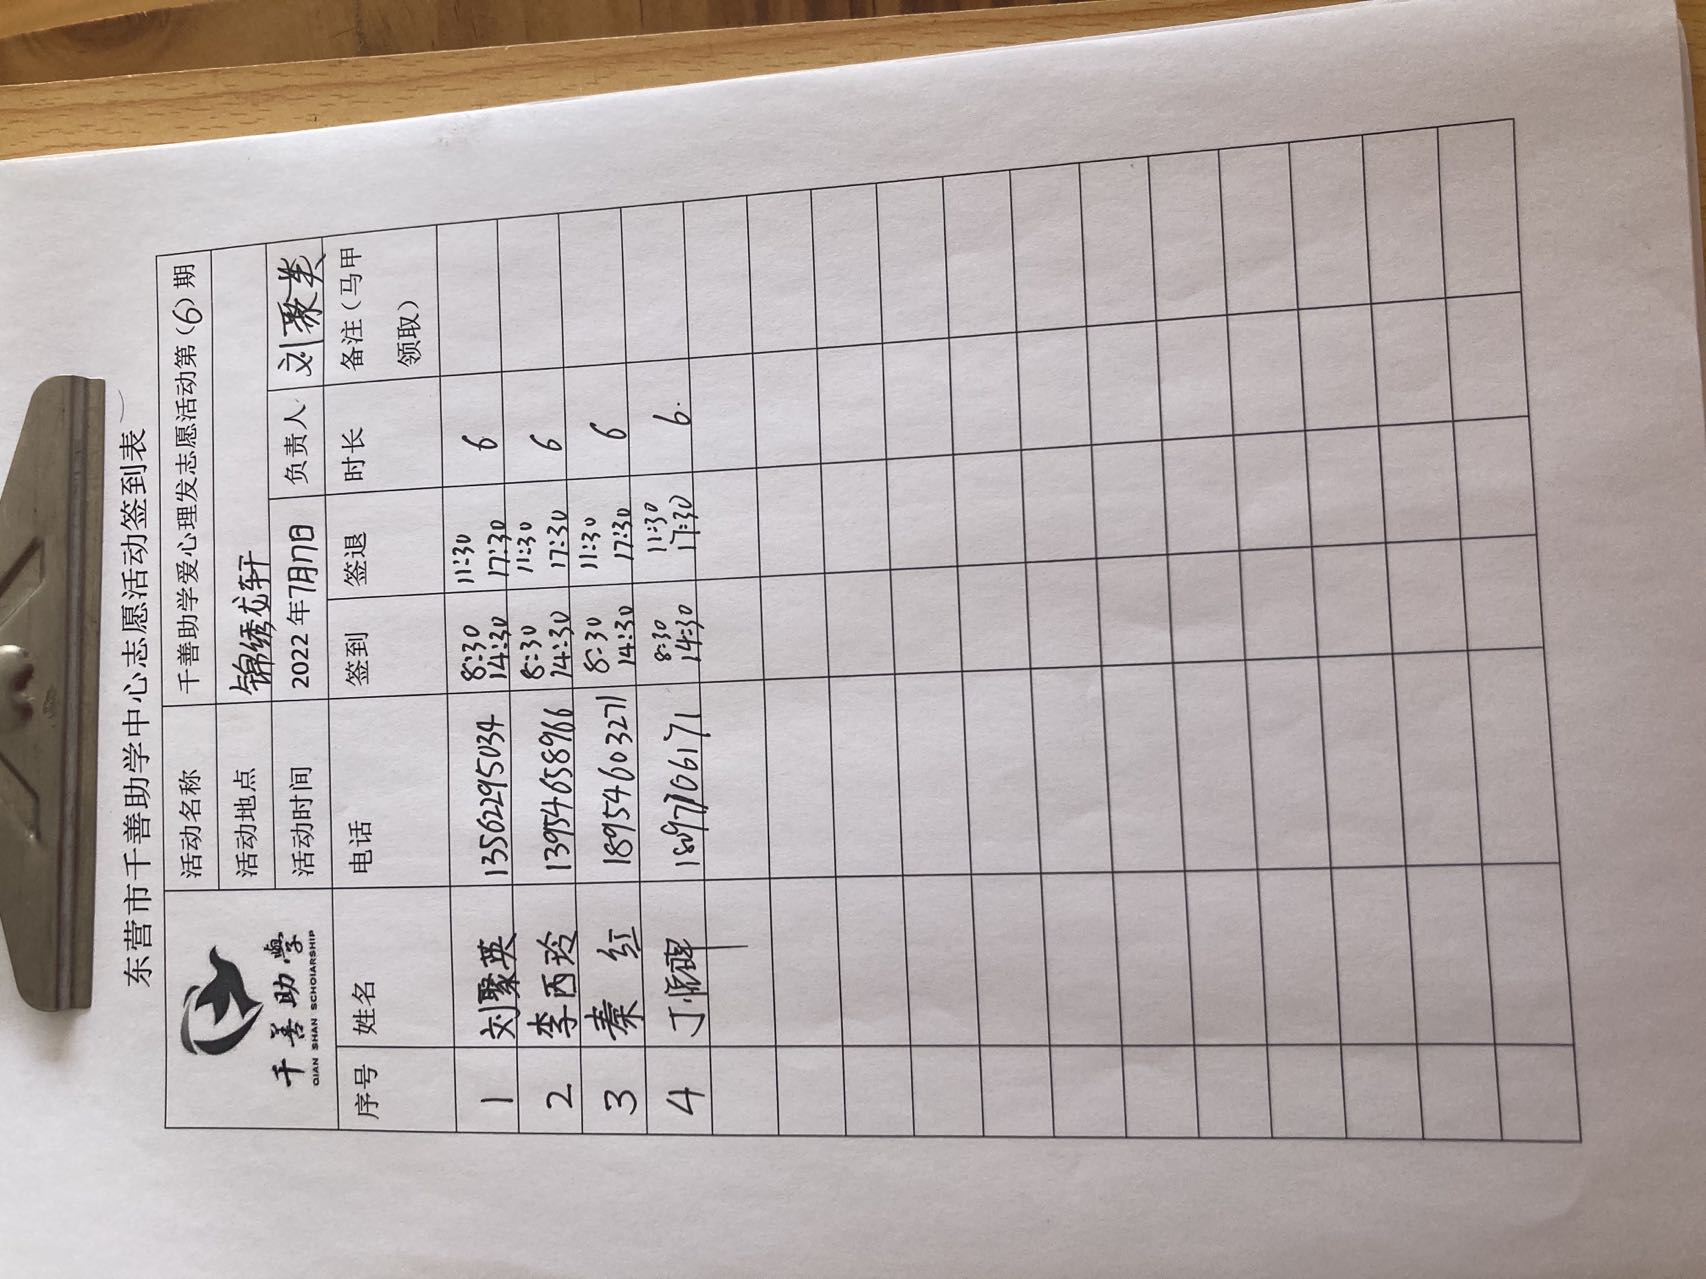 东营市千善助学中心志愿活动签到表
千善助学
QIAN SHAN SCHOLARSHIP
活动名称 千善助学爱心理发志愿活动第（6）期
活动地点 锦绣龙轩
活动时间 2022年7月17日 负责人 刘聚英
序号 姓名 电话 签到 签退 时长 备注（马甲领取）
1 刘聚英 13562295034 8:30 11:30 6
14:30 17:30
2 李丙玲 13954658966 8:30 11:30 6
14:30 17:30
3 秦红 18954603271 8:30 11:30 6
14:30 17:30
4 丁 8:30 11:30 6.
14:30 17:30